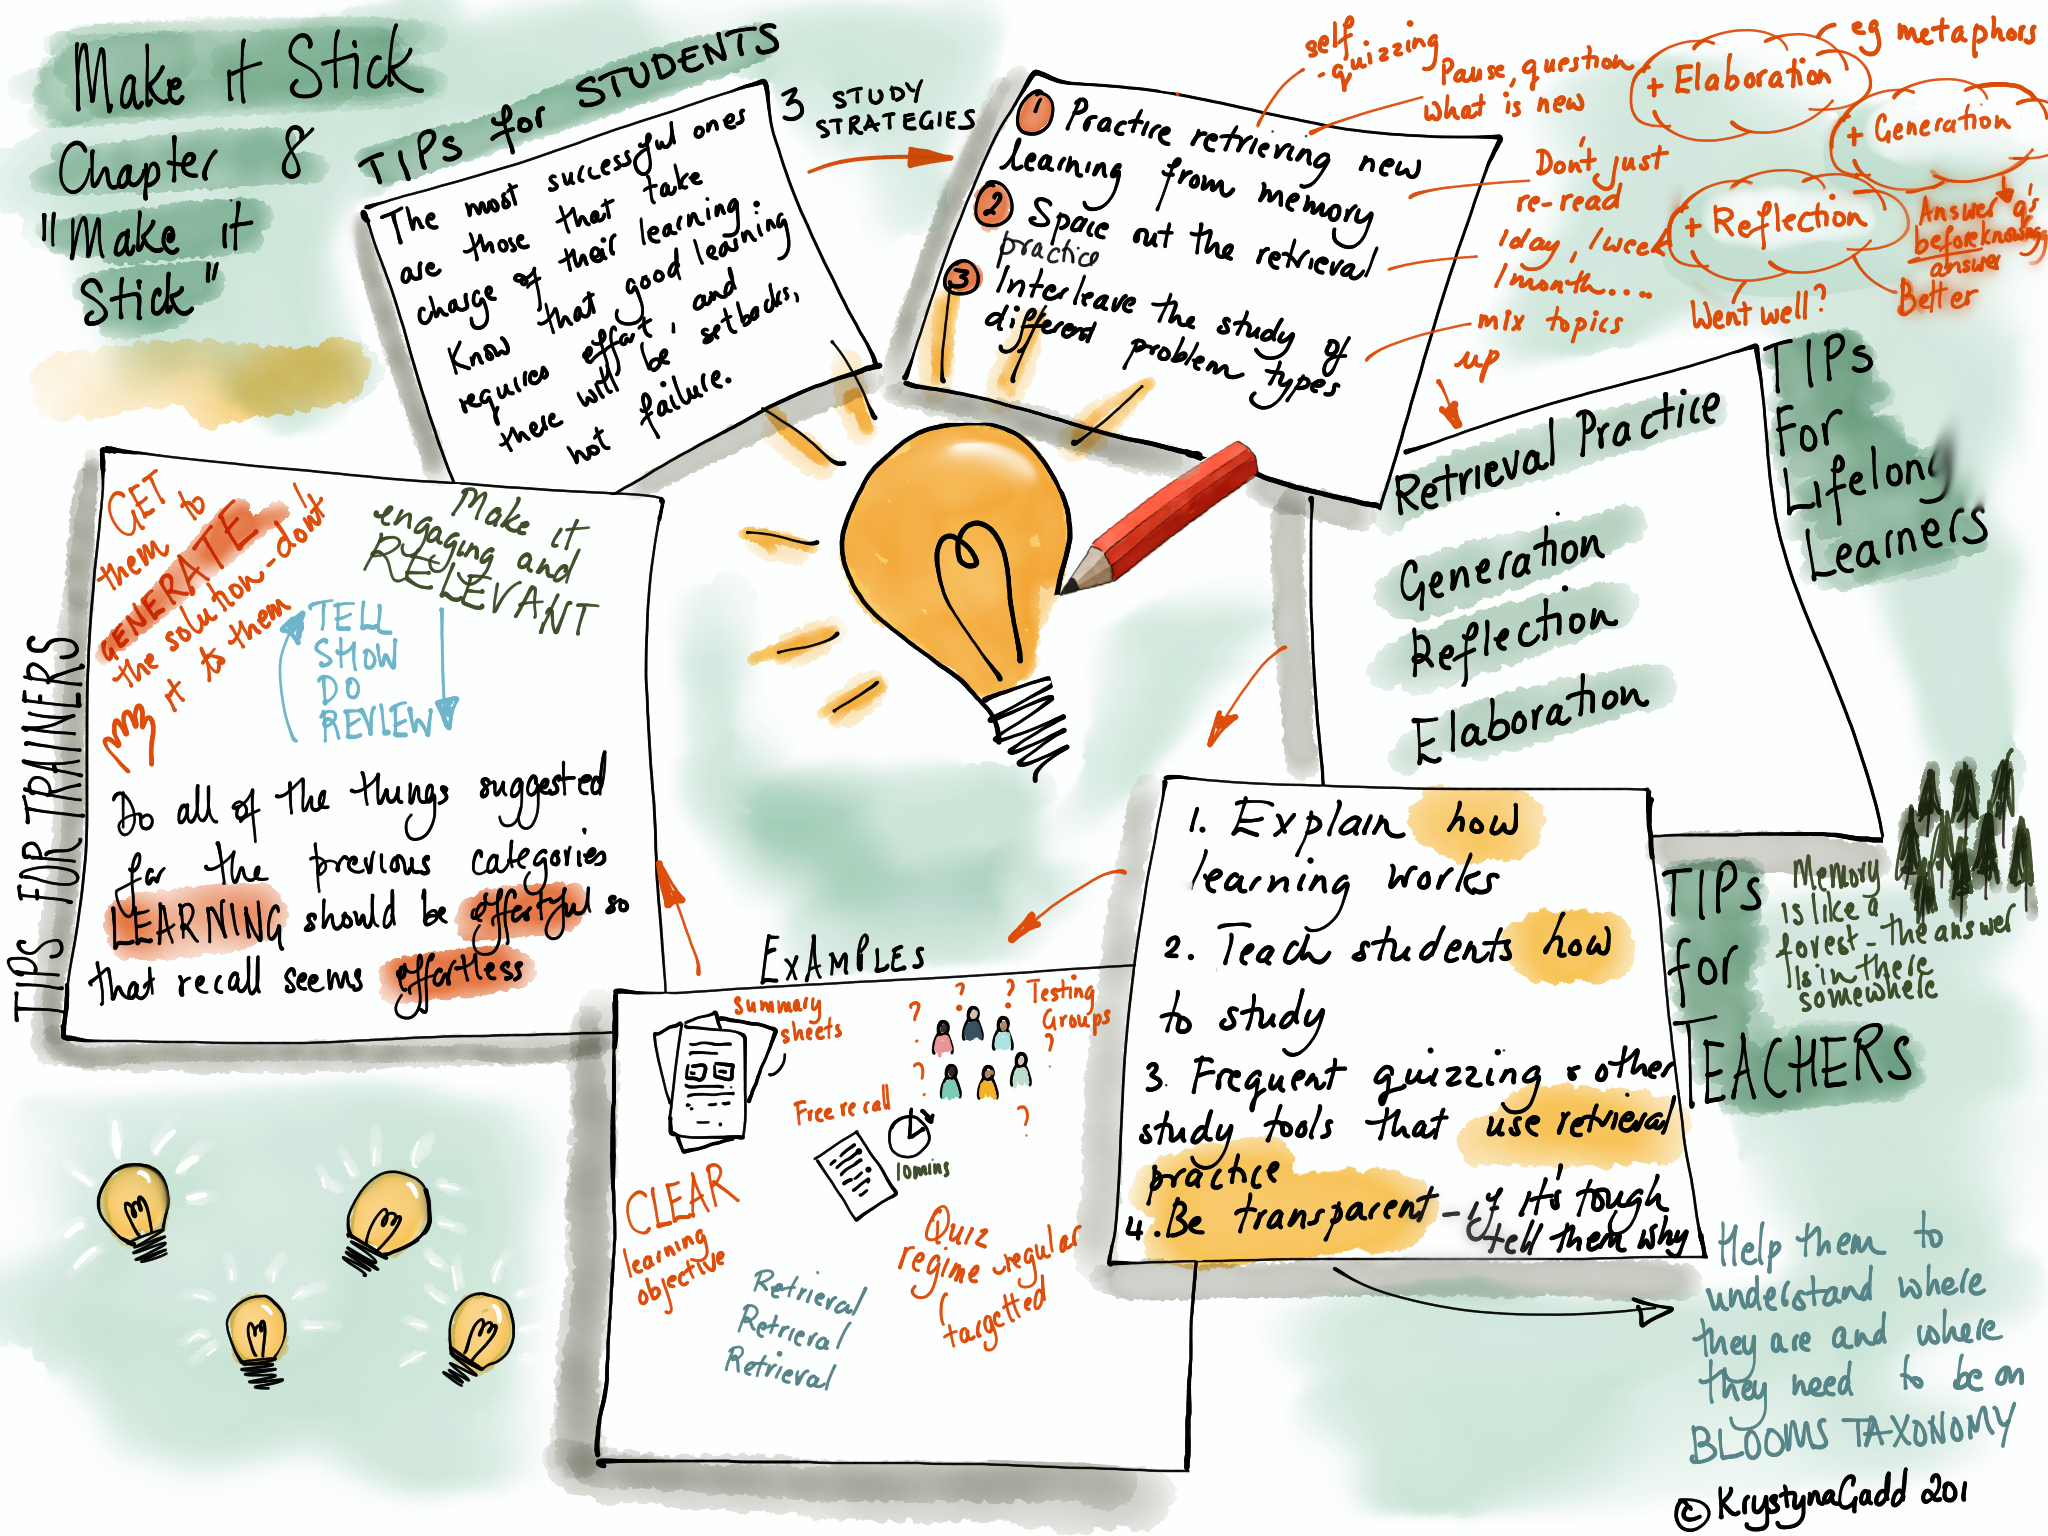 Make it Stick
Chapter 8
"Make it
Stick"
TIPs for STUDENTS
The most successful ones
are those that take
charge of their learning.
Know that good learning
requires effort, and
there will be setbacks,
not failure.
3 STUDY
STRATEGIES
1 Practice retrieving new
learning from memory
2 Space out the retrieval
practice
3 Interleave the study of
different problem types
self
-quizzing
Pause, question
what is new
Don't just
re-read
1day, 1week
1month....
mix topics
up
+ Elaboration
eg metaphors
+ Generation
Answer q's
before knowing
answer
+ Reflection
Went well?
Better
TIPs
For
Lifelong
Learners
Retrieval Practice
Generation
Reflection
Elaboration
TIPs
for
TEACHERS
1. Explain how
learning works
2. Teach students how
to study
3. Frequent quizzing & other
study tools that use retrieval
practice
4. Be transparent - if it's tough
tell them why
Memory
is like a
forest - the answer
is in there
somewhere
Help them to
understand where
they are and where
they need to be on
BLOOMS TAXONOMY
EXAMPLES
Summary
sheets
? ? ? Testing
Groups
? ? ?
Free recall
10mins
CLEAR
learning
objective
Retrieval
Retrieval
Retrieval
Quiz
regime - regular
targetted
TIPS FOR TRAINERS
GET
them to
GENERATE
the solution - don't
it to them
Make it
engaging and
RELEVANT
TELL
SHOW
DO
REVIEW
Do all of the things suggested
for the previous categories
LEARNING should be effortful so
that recall seems effortless
© KrystynaGadd 201